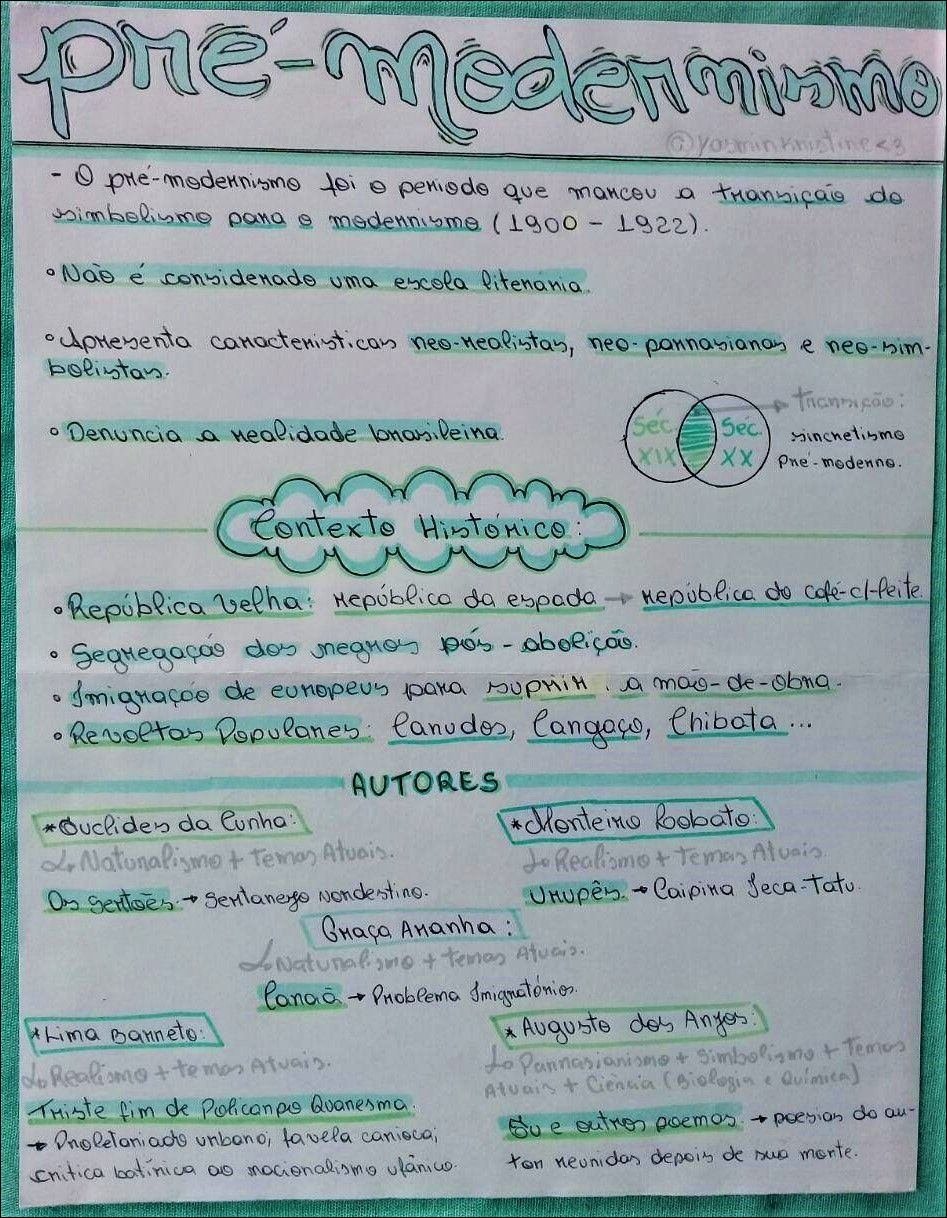 Pré-modernismo
@yasminkristine<3
- O pré-modernismo foi o periodo que marcou a transição do
simbolismo para o modernismo (1900 - 1922).
° Não é considerado uma escola literária.
° Apresenta caracteristicas neo-realistas, neo-parnasianas e neo-sim-
bolistas.
° Denuncia a realidade brasileira.
Séc. XIX
Séc. XX
transição:
sincretismo
Pré-moderno.
Contexto Histórico:
• República Velha: república da espada → república do café-c/-leite.
• Segregação dos negros pós-abolição.
• Imigração de europeus para suprir a mão-de-obra.
• Revoltas Populares: Canudos, Cangaço, Chibata ...
AUTORES
*Euclides da Cunha:
↳ Naturalismo + Temas Atuais.
Os Sertões. → Sertanejo nordestino.
*Monteiro Lobato:
↳ Realismo + Temas Atuais.
Urupês. → Caipira Jeca-Tatu.
Graça Aranha:
↳ Naturalismo + temas Atuais.
Canaã → Problema Imigratórios.
*Lima Barreto:
↳ Realismo + temas Atuais.
Triste fim de Policarpo Quaresma:
→ Proletariado urbano; favela carioca;
critica batírica ao nacionalismo ufânico.
* Augusto dos Anjos:
↳ Parnasianismo + Simbolismo + Temas
Atuais + Ciência (Biologia e Química)
Eu e outros poemas. → poesias do au-
tor reunidas depois de sua morte.